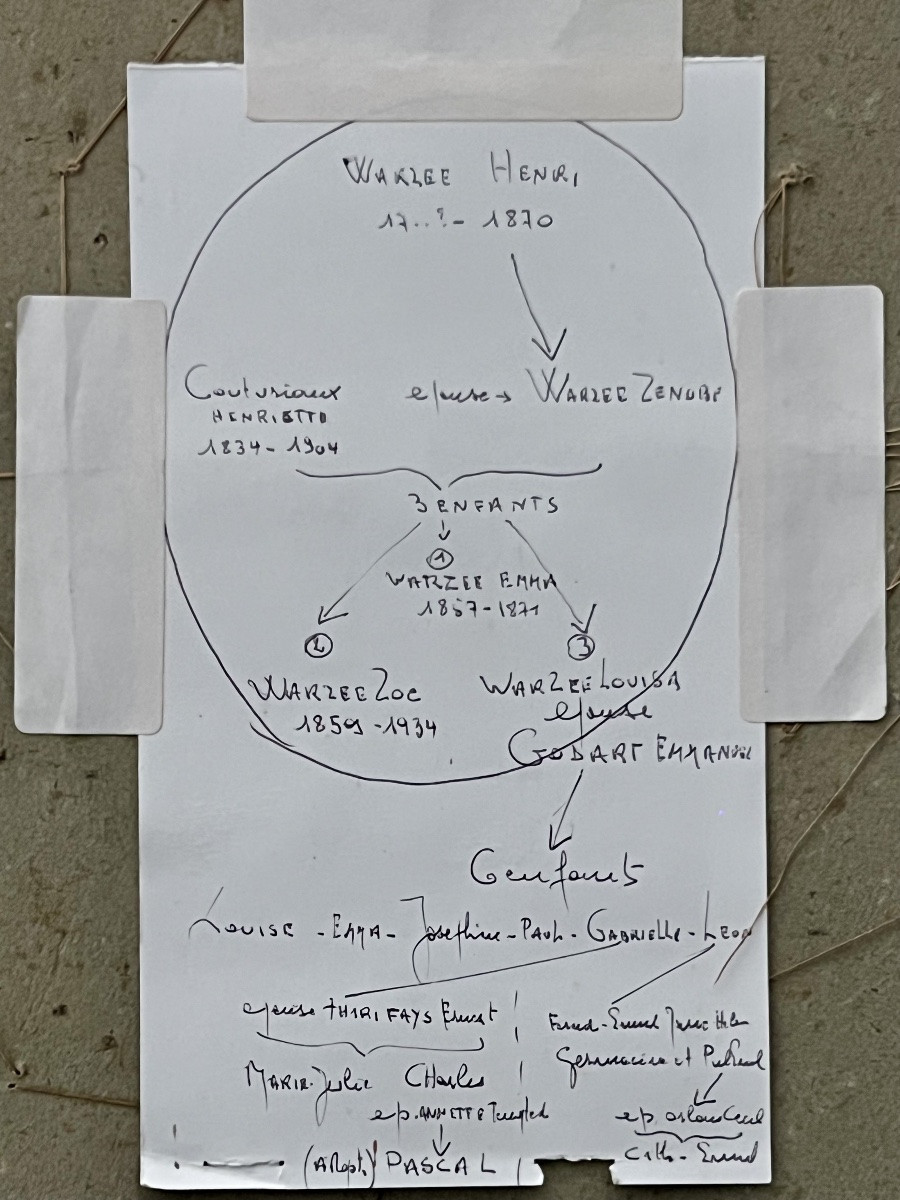 WARZEE HENRI
17..?- 1870
Couturiaux
HENRIETTE
1834- 1904
epouse → WARZEE ZENOBE
3 ENFANTS
1
WARZEE EMMA
1857-1871
2
WARZEE ZOE
1859 -1934
3
WARZEE LOUISA
epouse
GODART EMMANUEL
6 enfants
LOUISE - EMMA - Josephine - PAUL - GABRIELLE - LEON
epouse THIRIFAYS Ernest
MARIE-Julie CHarles
ep. ANNETTE
(Adopt.) PASCAL
Germaine et
ep.